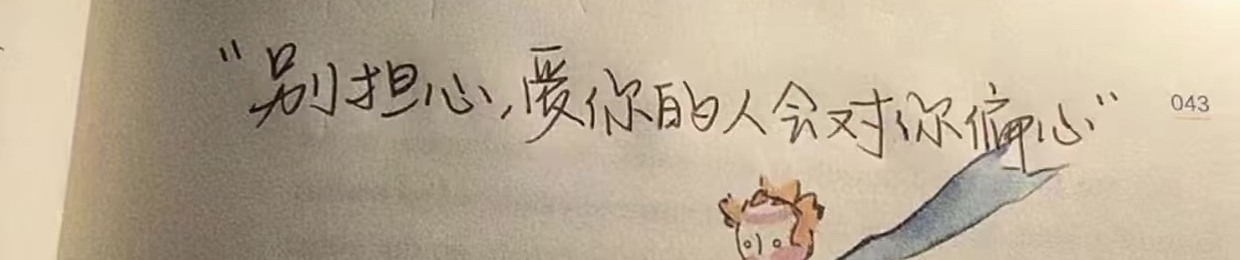 "别担心,爱你的人会对你偏心"
043